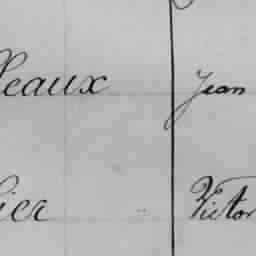 eaux Jean
ier Victor